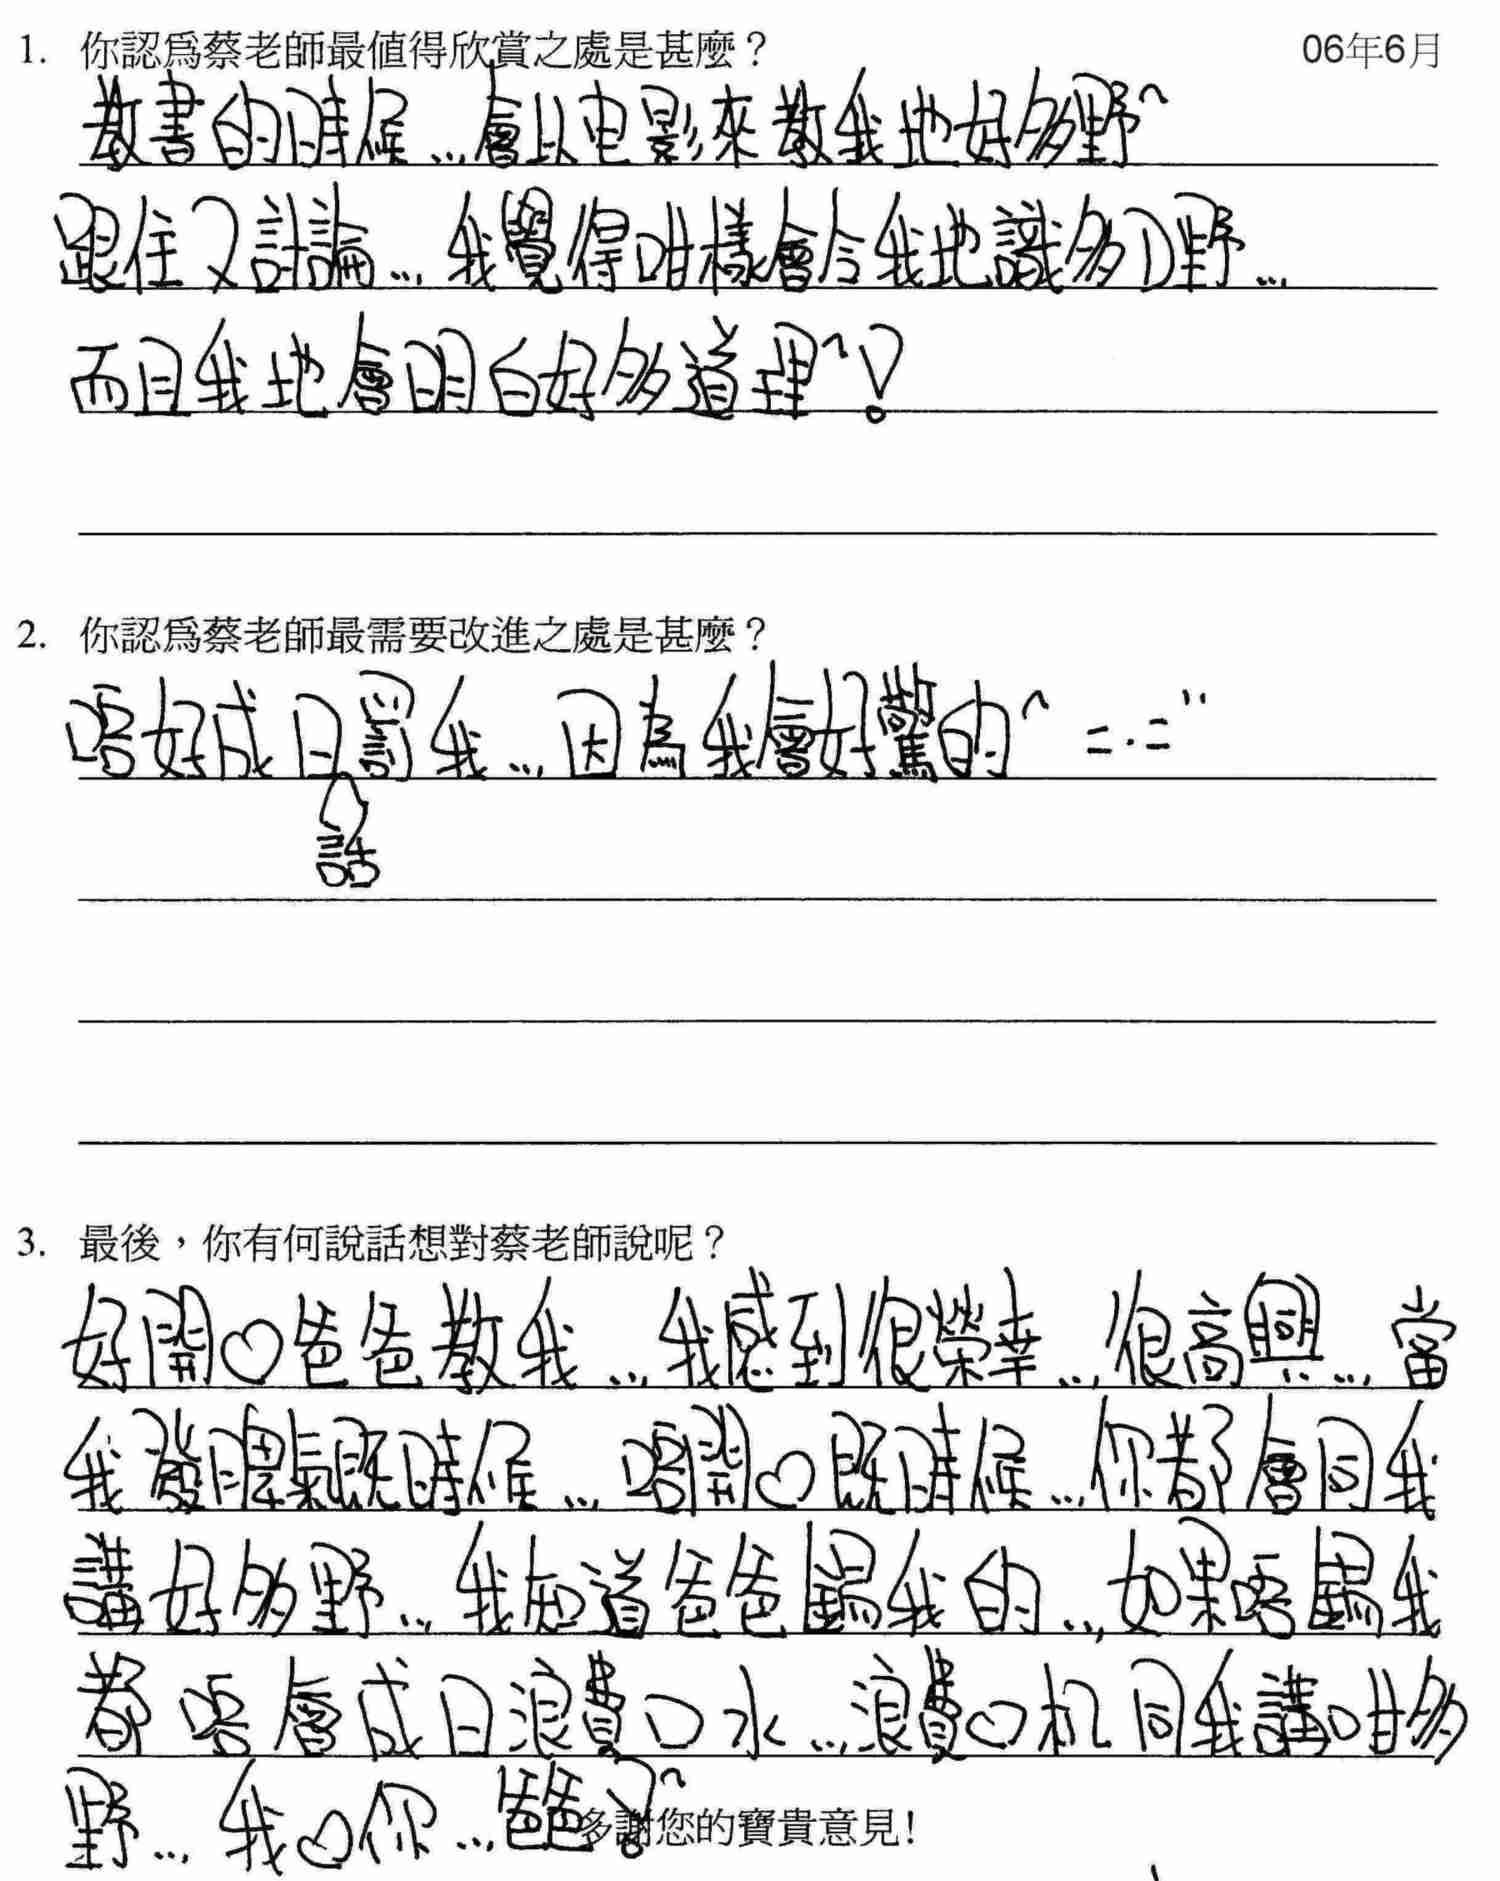 1. 你認爲蔡老師最值得欣賞之處是甚麼？ 06年6月
教書的時候...會以电影來教我地好多野^
跟住又討論...我覺得咁樣會令我地識多D野...
而且我地會明白好多道理^!
2. 你認爲蔡老師最需要改進之處是甚麼？
唔好成日罰我...因為我會好驚的^ =.="
話
3. 最後，你有何說話想對蔡老師說呢？
好開♡爸爸教我...我感到很榮幸...很高興...當
我發脾氣既時候...唔開♡既時候...你都會同我
講好多野...我知道爸爸錫我的...如果唔錫我
都唔會成日浪費口水...浪費♡机同我講咁多
野...我♡你...爸爸!^
多謝您的寶貴意見!